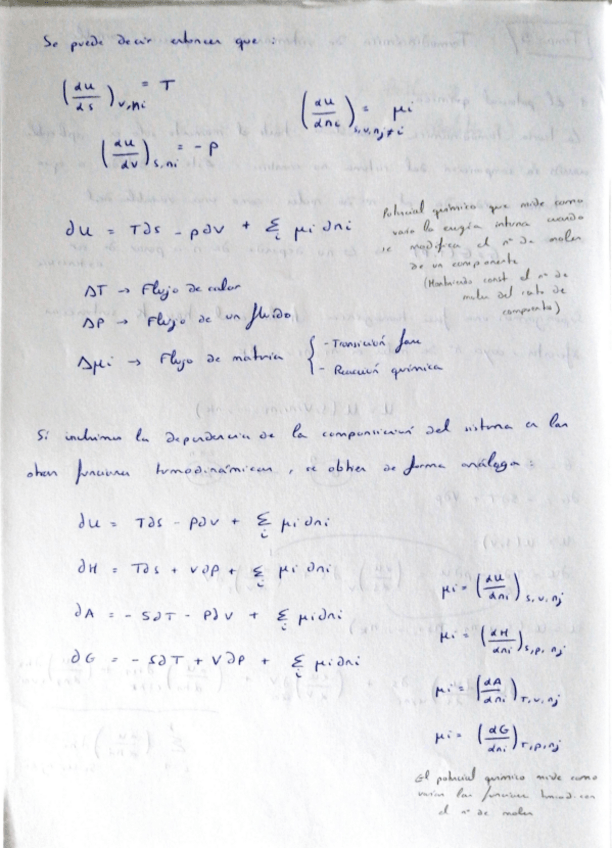 Se puede decir entonces que:
(∂U/∂S)_{V,ni} = T
(∂U/∂ni)_{S,V,nj≠i} = μi
(∂U/∂V)_{S,ni} = -P
∂U = T∂S - P∂V + Σ_i μi ∂ni
Potencial químico que mide como
varía la energía interna cuando
se modifica el nº de moles
de un componente
(Manteniendo const. el nº de
moles del resto de
componentes)
ΔT → Flujo de calor
ΔP → Flujo de un fluido
Δμi → Flujo de materia { - Transición fase
- Reacción química
Si incluimos la dependencia de la composición del sistema en las
otras funciones termodinámicas, se obtien de forma análoga:
∂U = T∂S - P∂V + Σ_i μi ∂ni
∂H = T∂S + V∂P + Σ_i μi ∂ni
∂A = -S∂T - P∂V + Σ_i μi ∂ni
∂G = -S∂T + V∂P + Σ_i μi ∂ni
μi = (∂U/∂ni)_{S,V,nj}
μi = (∂H/∂ni)_{S,P,nj}
μi = (∂A/∂ni)_{T,V,nj}
μi = (∂G/∂ni)_{T,P,nj}
El potencial químico mide como
varían las funciones termod. con
el nº de moles